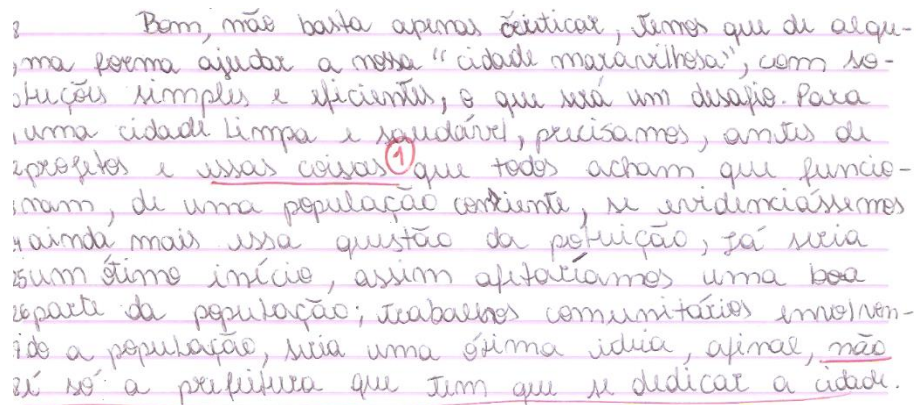 Bom, não basta apenas criticar, temos que de algu-
ma forma ajudar a nossa "cidade maravilhosa", com so-
luções simples e eficientes, o que será um desafio. Para
uma cidade limpa e saudável, precisamos, antes de
projetos e essas coisas 1 que todos acham que funcio-
nam, de uma população conciente, se evidenciássemos
ainda mais essa questão da poluição, já seria
um ótimo início, assim afetaríamos uma boa
parte da população; trabalhos comunitários envolven-
do a população, seria uma ótima idéia, afinal, não
é só a prefeitura que tem que se dedicar a cidade.